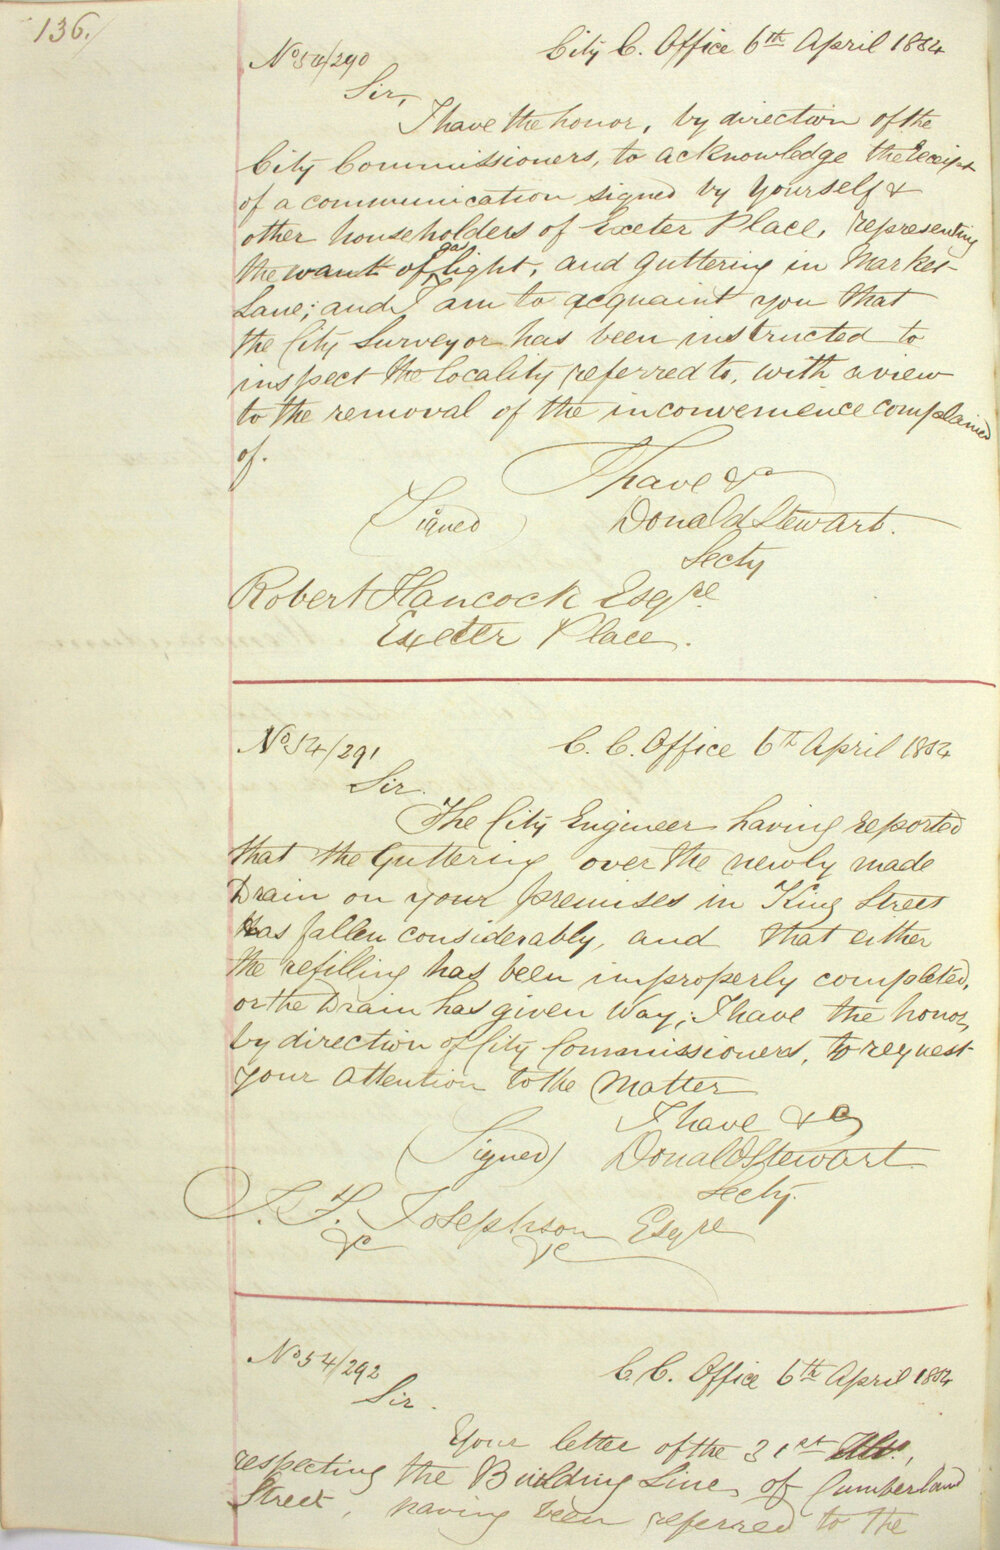 136.
No 54/290
City C. Office 6th April 1854
Sir,
I have the honor, by direction of the
City Commissioners, to acknowledge the Receipt
of a communication signed by Yourself &
other householders of Exeter Place, representing
the want of gas light, and guttering in Market
Lane; and I am to acquaint you that
the City Surveyor has been instructed to
inspect the locality referred to, with a view
to the removal of the inconvenience complained
of.
I have &c
(Signed) Donald Stewart.
Secty
Robert Hancock Esqre
Exeter Place.
No 54/291
C. C. Office 6th April 1854
Sir.
The City Engineer having reported
that the Guttering over the newly made
Drain on your premises in King Street
has fallen considerably, and that either
the refilling has been improperly completed,
or the Drain has given Way; I have the honor,
by direction of City Commissioners, to request
your attention to the Matter
I have &c
(Signed) Donald Stewart
Secty.
Josephson Esqre
&c &c
No 54/292
C. C. Office 6th April 1854
Sir.
Your letter of the 31st Ulto.,
respecting the Building Line of Cumberland
Street, having been referred to the